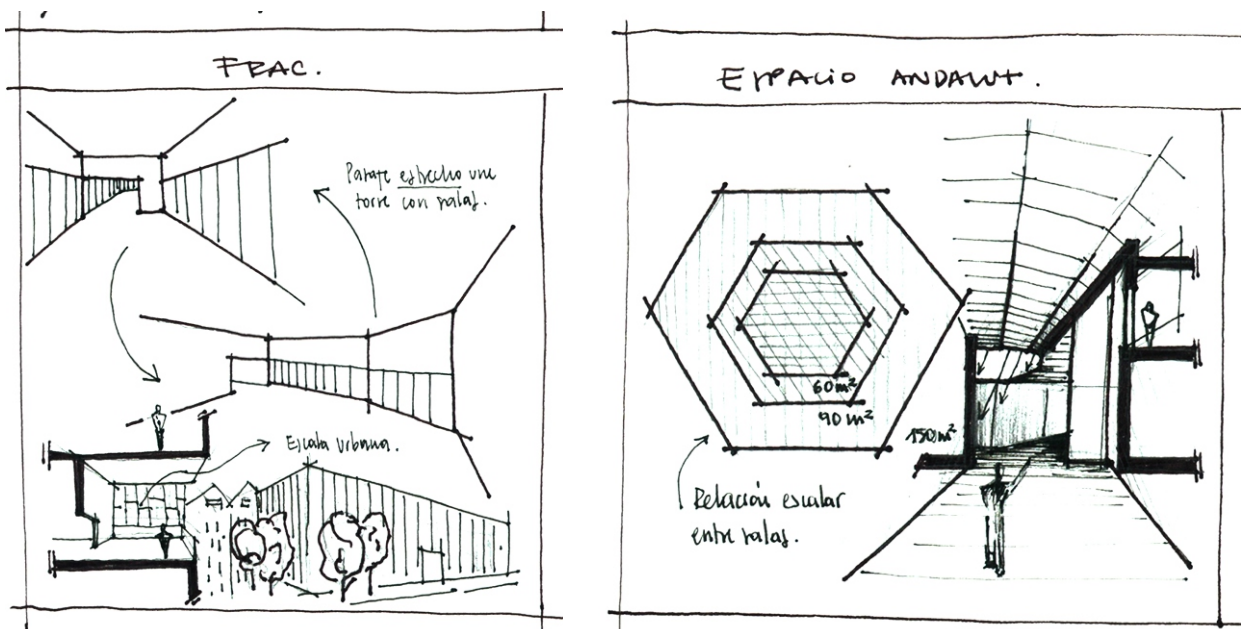 FRAC.
Pasaje estrecho une
torre con salas.
Escala Urbana.
ESPACIO ANDALUZ.
60 m²
90 m²
150 m²
Relación escalar
entre salas.